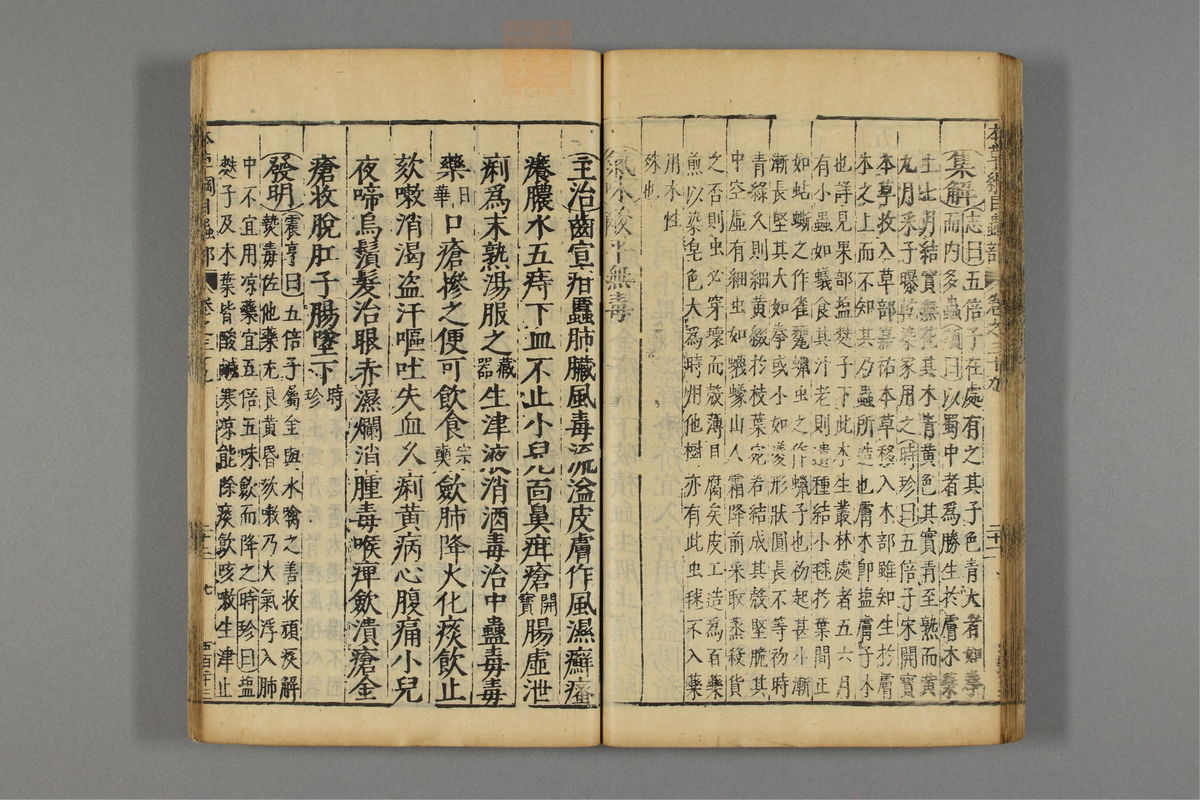 本草綱目蟲部 卷之三十九
集解志曰五倍子在處有之其子色青大者如拳
而內多蟲頌曰以蜀中者為勝生於膚木葉
上七月結實無花其木青黃色其實青至熟而黃
九月采子曝乾染家用之時珍曰五倍子宋開寶
本草收入草部嘉祐本草移入木部雖知生於膚
木之上而不知其乃蟲所造也膚木即鹽膚子木
也詳見果部鹽麩子下此木生叢林處者五六月
有小蟲如蟻食其汁老則遺種結小毬於葉間正
如蛄蟖之作雀甕蠟虫之作蠟子也初起甚小漸
漸長堅其大如拳或小如菱形狀圓長不等初時
青綠久則細黃綴於枝葉宛若結成其殼堅脆其
中空虛有細虫如蠛蠓山人霜降前采取蒸殺貨
之否則虫必穿壞而殼薄且腐矣皮工造為百藥
煎以染皂色大為時用他樹亦有此虫毬不入藥
用木性
殊也
氣味酸平無毒
主治齒宣疳䘌肺臟風毒流溢皮膚作風濕癬瘡
癢膿水五痔下血不止小兒面鼻疳瘡開寶腸虛泄
痢為末熟湯服之藏器生津液消酒毒治中蠱毒毒
藥日華口瘡摻之便可飲食宗奭歛肺降火化痰飲止
欬嗽消渴盜汗嘔吐失血久痢黃病心腹痛小兒
夜啼烏鬚髮治眼赤濕爛消腫毒喉痺歛潰瘡金
瘡收脫肛子腸墜下時珍
發明震亨曰五倍子屬金與水噙之善收頑痰解
熱毒佐他藥尤良黃昏欬嗽乃火氣浮入肺
中不宜用涼藥宜五倍五味歛而降之時珍曰鹽
麩子及木葉皆酸鹹寒涼能除痰飲咳嗽生津止
本草綱目蟲部 卷之三十九